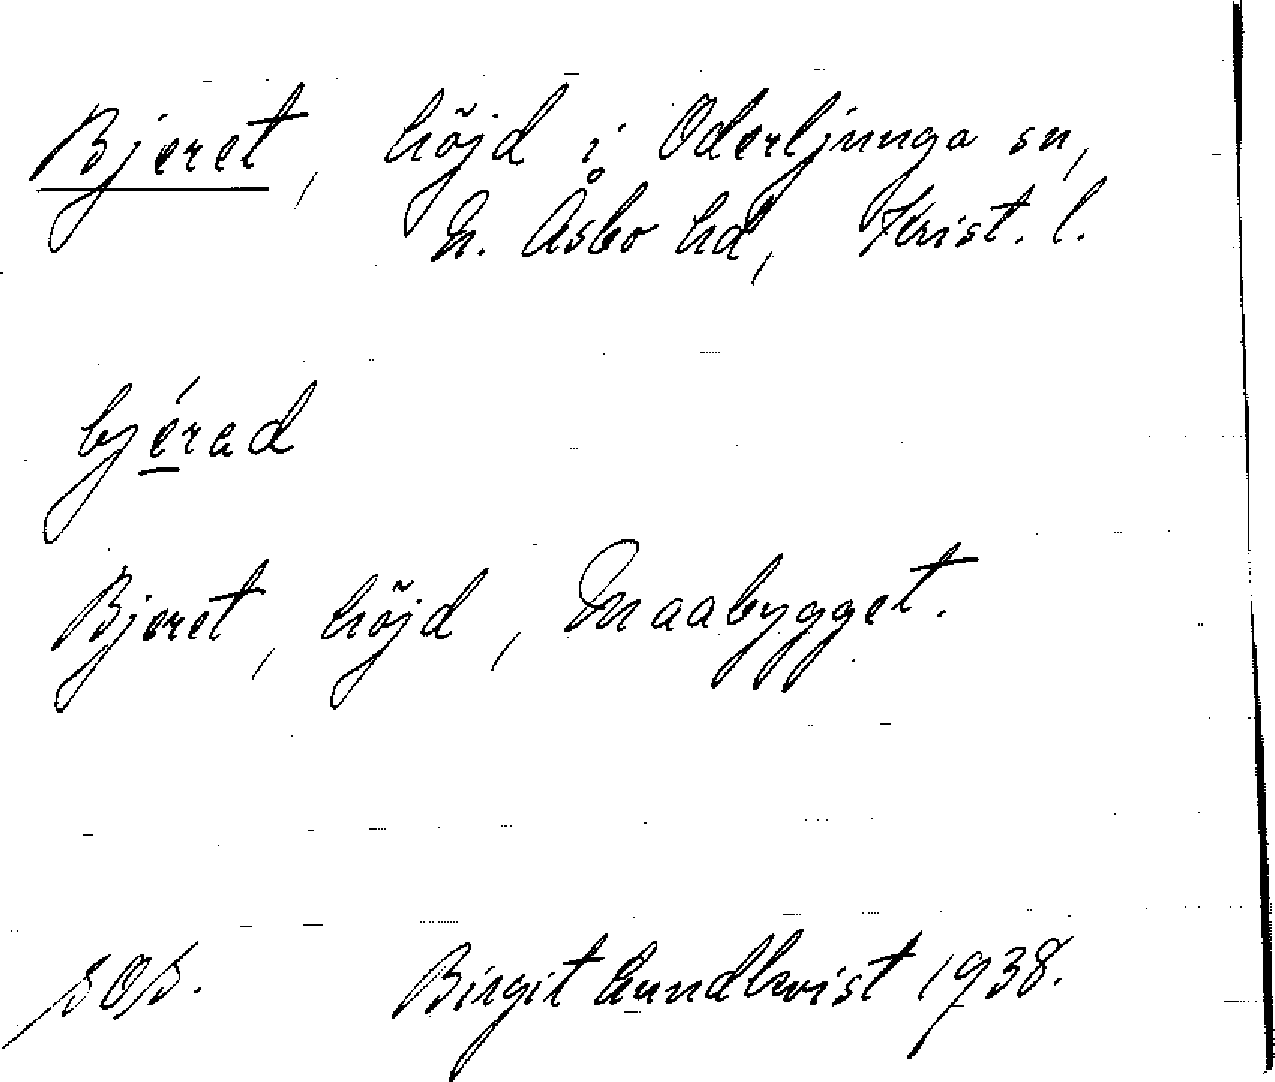 Bjeret, höjd i Oderljunga sn,
N. Åsbo hd, Krist. l.
bjérad
Bjeret, höjd, Maabygget.
sOs. Birgit Lundkvist 1938.